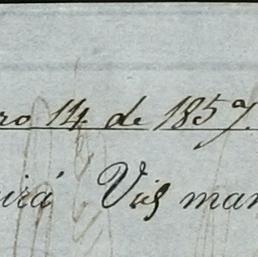 ro 14 de 1857.
irá Vd man